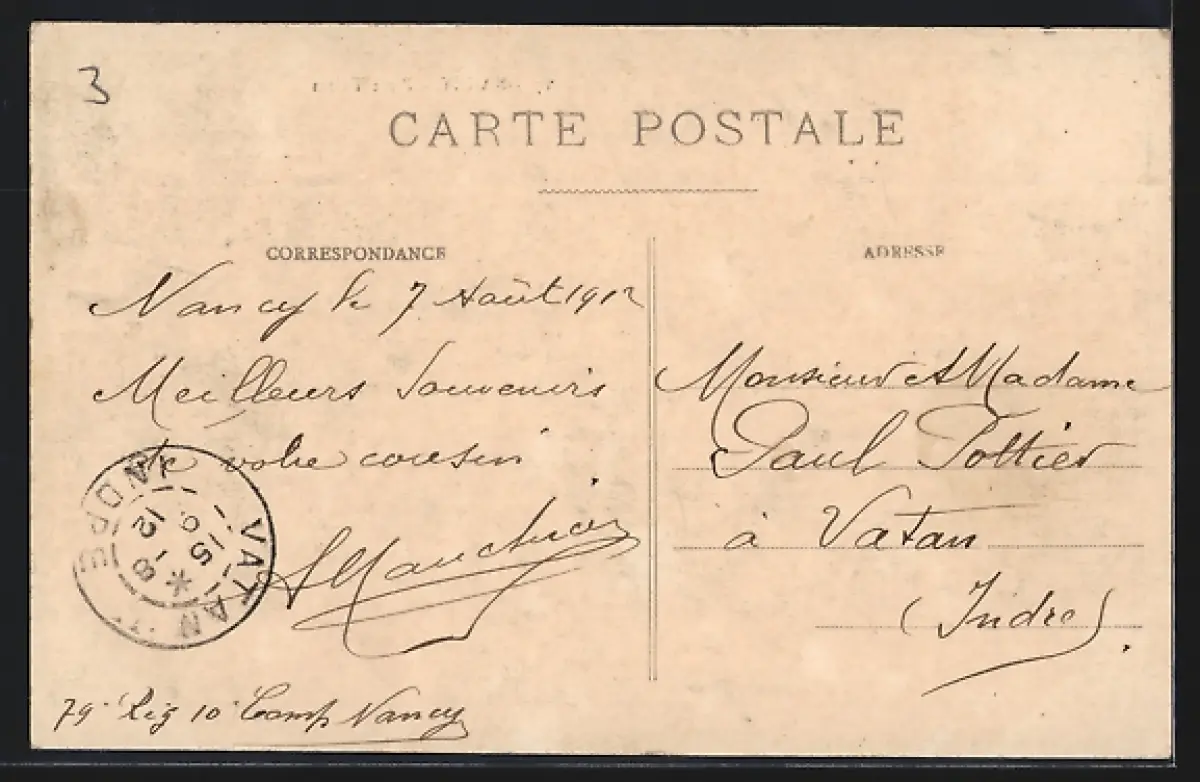 3
CARTE POSTALE
CORRESPONDANCE
Nancy le 7 Août 1912
Meilleurs Souvenirs
de votre cousin
79e Rég 10e Comp Nancy
VATAN
INDRE
15
8
12
ADRESSE
Monsieur et Madame
Paul Pottier
à Vatan
(Indre).